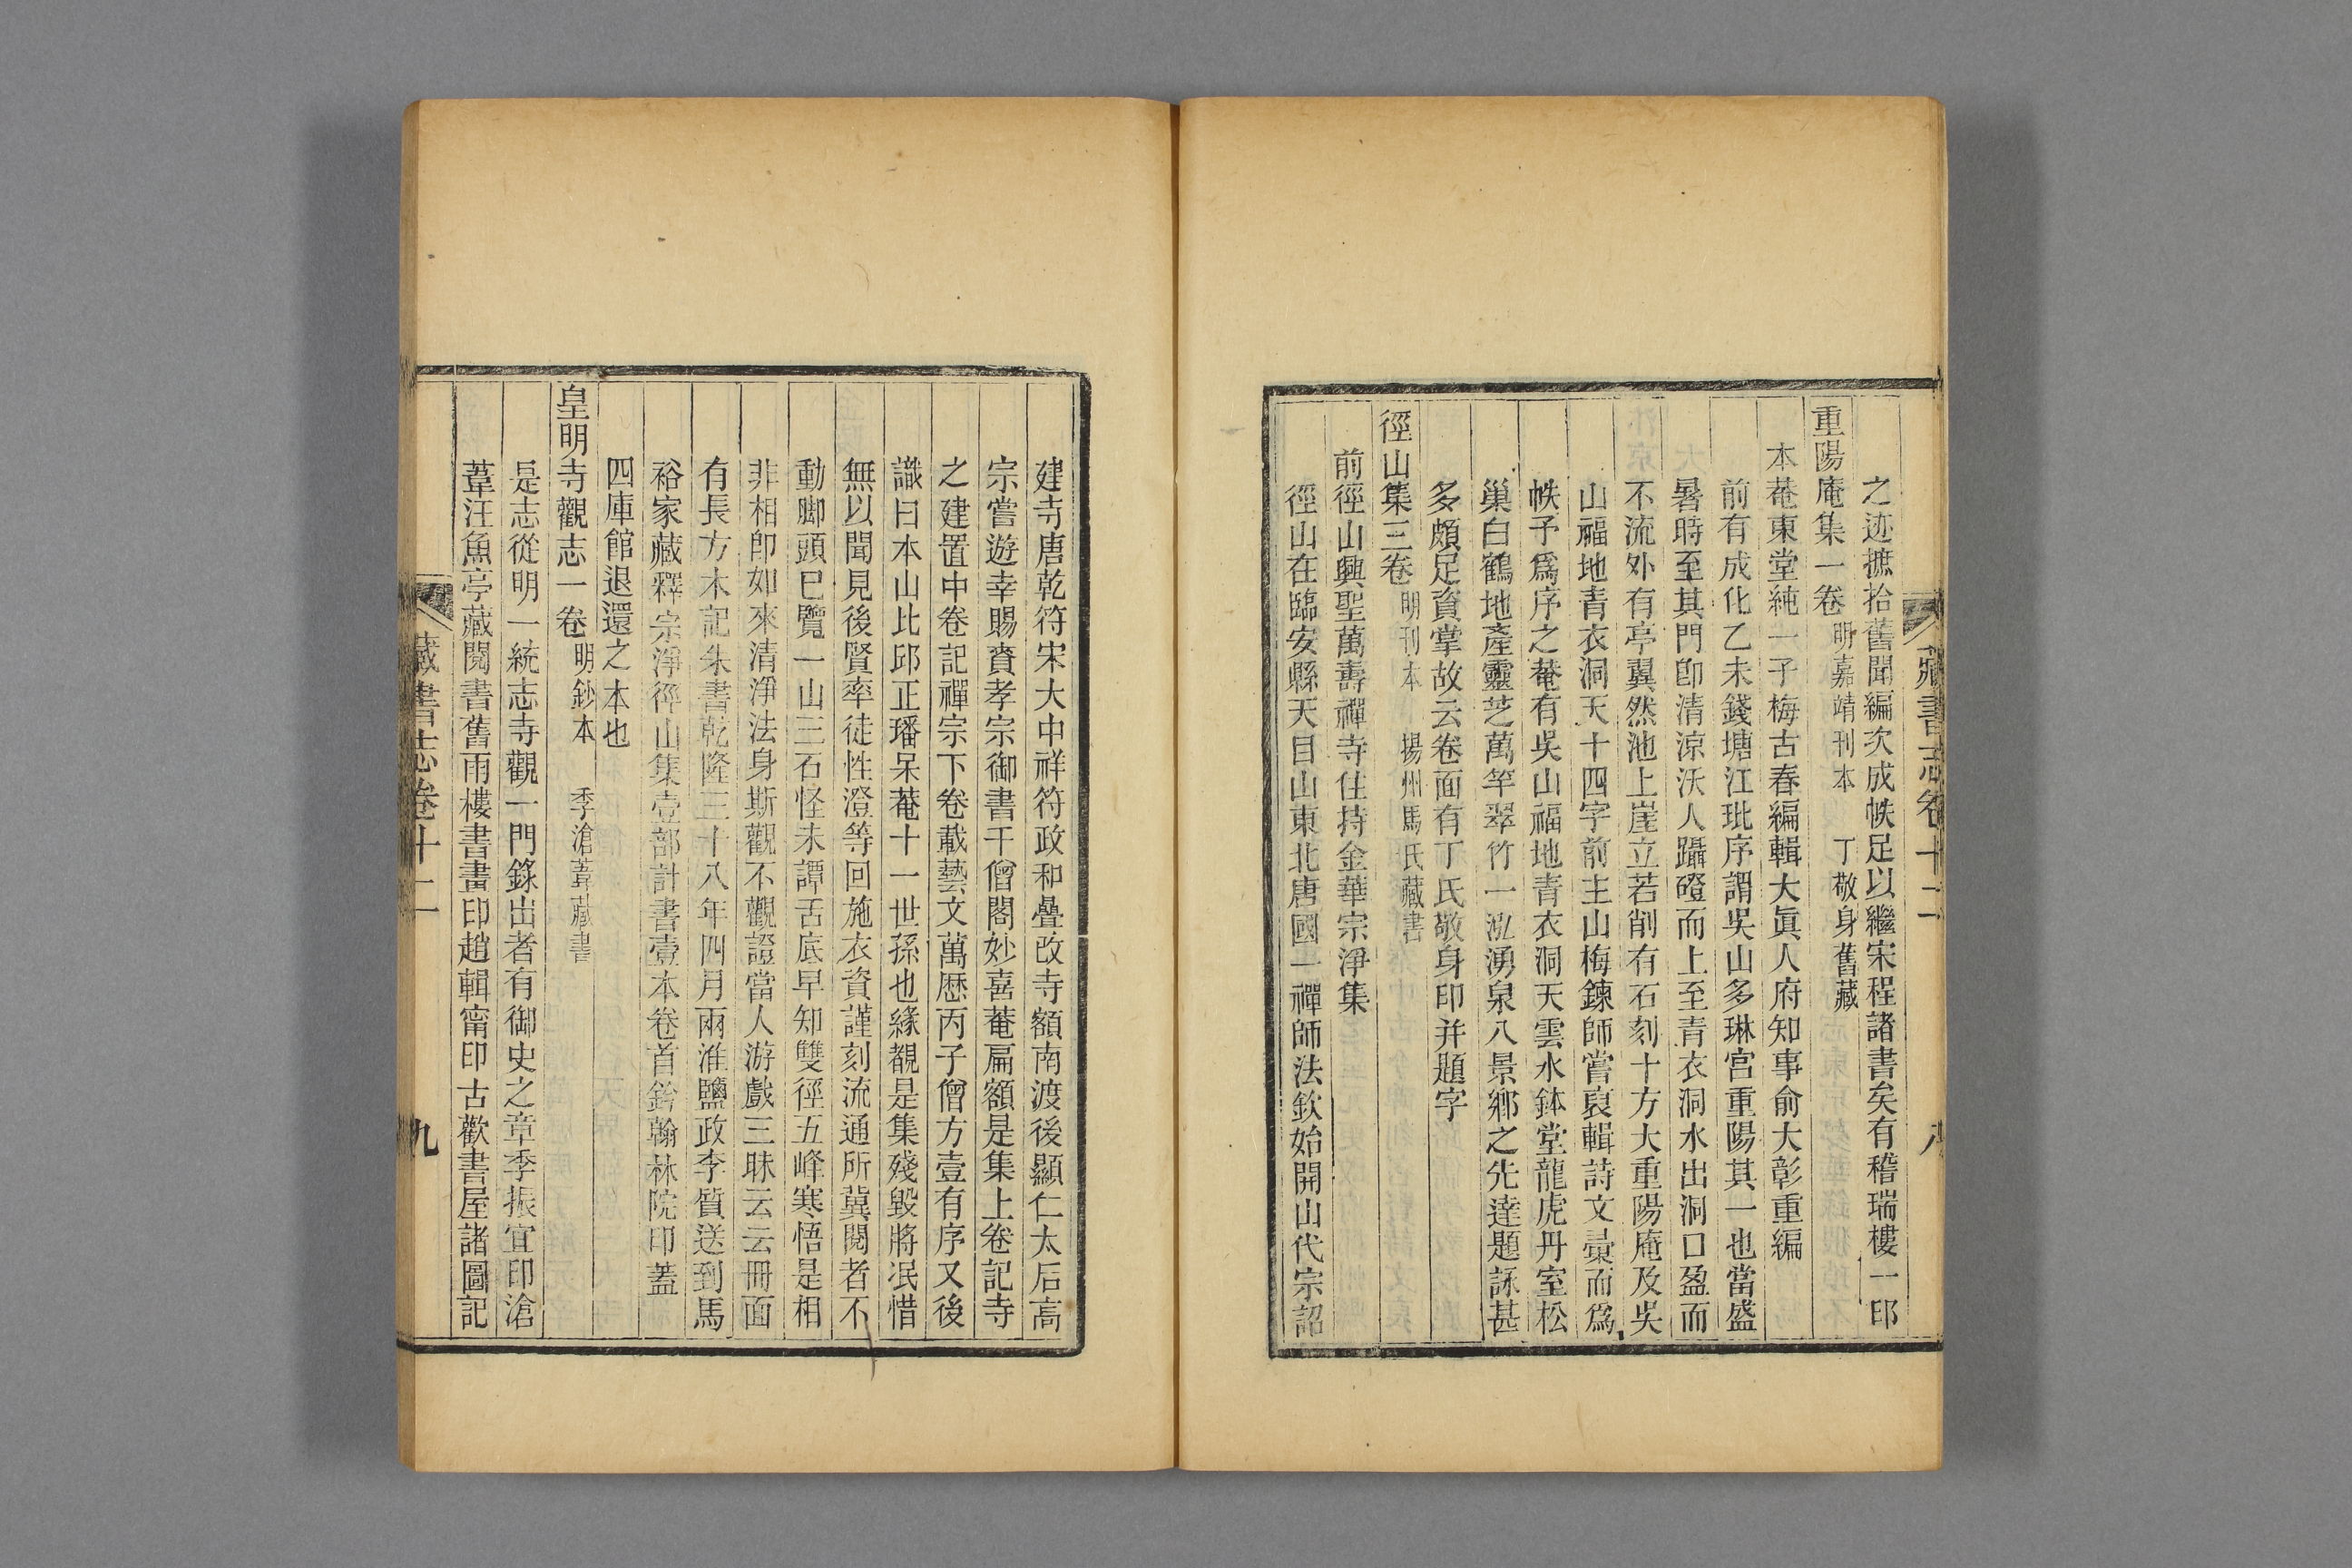 藏書志卷十二 八
之迹摭拾舊聞編次成帙足以繼宋程諸書矣有稽瑞樓一印
重陽庵集一卷 明嘉靖刊本 丁敬身舊藏
本菴東堂純一子梅古春編輯大眞人府知事俞大彰重編
前有成化乙未錢塘江玭序謂吳山多琳宮重陽其一也當盛
暑時至其門卽清涼沃人躡磴而上至青衣洞水出洞口盈而
不流外有亭翼然池上崖立若削有石刻十方大重陽庵及吳
山福地青衣洞天十四字前主山梅鍊師嘗裒輯詩文彙而爲
帙予爲序之菴有吳山福地青衣洞天雲水鉢堂龍虎丹室松
巢白鶴地產靈芝萬竿翠竹一泓湧泉八景鄉之先達題詠甚
多頗足資掌故云卷面有丁氏敬身印并題字
徑山集三卷 明刊本 揚州馬氏藏書
前徑山興聖萬壽禪寺住持金華宗淨集
徑山在臨安縣天目山東北唐國一禪師法欽始開山代宗詔
建寺唐乾符宋大中祥符政和疊改寺額南渡後顯仁太后高
宗嘗遊幸賜賚孝宗御書千僧閣妙喜菴扁額是集上卷記寺
之建置中卷記禪宗下卷載藝文萬歷丙子僧方壹有序又後
識曰本山比邱正璠呆菴十一世孫也緣覩是集殘毀將泯惜
無以聞見後賢率徒性澄等回施衣資謹刻流通所冀閱者不
動脚頭已覽一山三石怪未譚舌底早知雙徑五峰寒悟是相
非相卽如來清淨法身斯觀不觀證當人游戲三昧云云冊面
有長方木記朱書乾隆三十八年四月兩淮鹽政李質送到馬
裕家藏釋宗淨徑山集壹部計書壹本卷首鈐翰林院印蓋
四庫館退還之本也
皇明寺觀志一卷 明鈔本 季滄葦藏書
是志從明一統志寺觀一門錄出者有御史之章季振宜印滄
葦汪魚亭藏閱書舊雨樓書畫印趙輯甯印古歡書屋諸圖記
藏書志卷十二 九